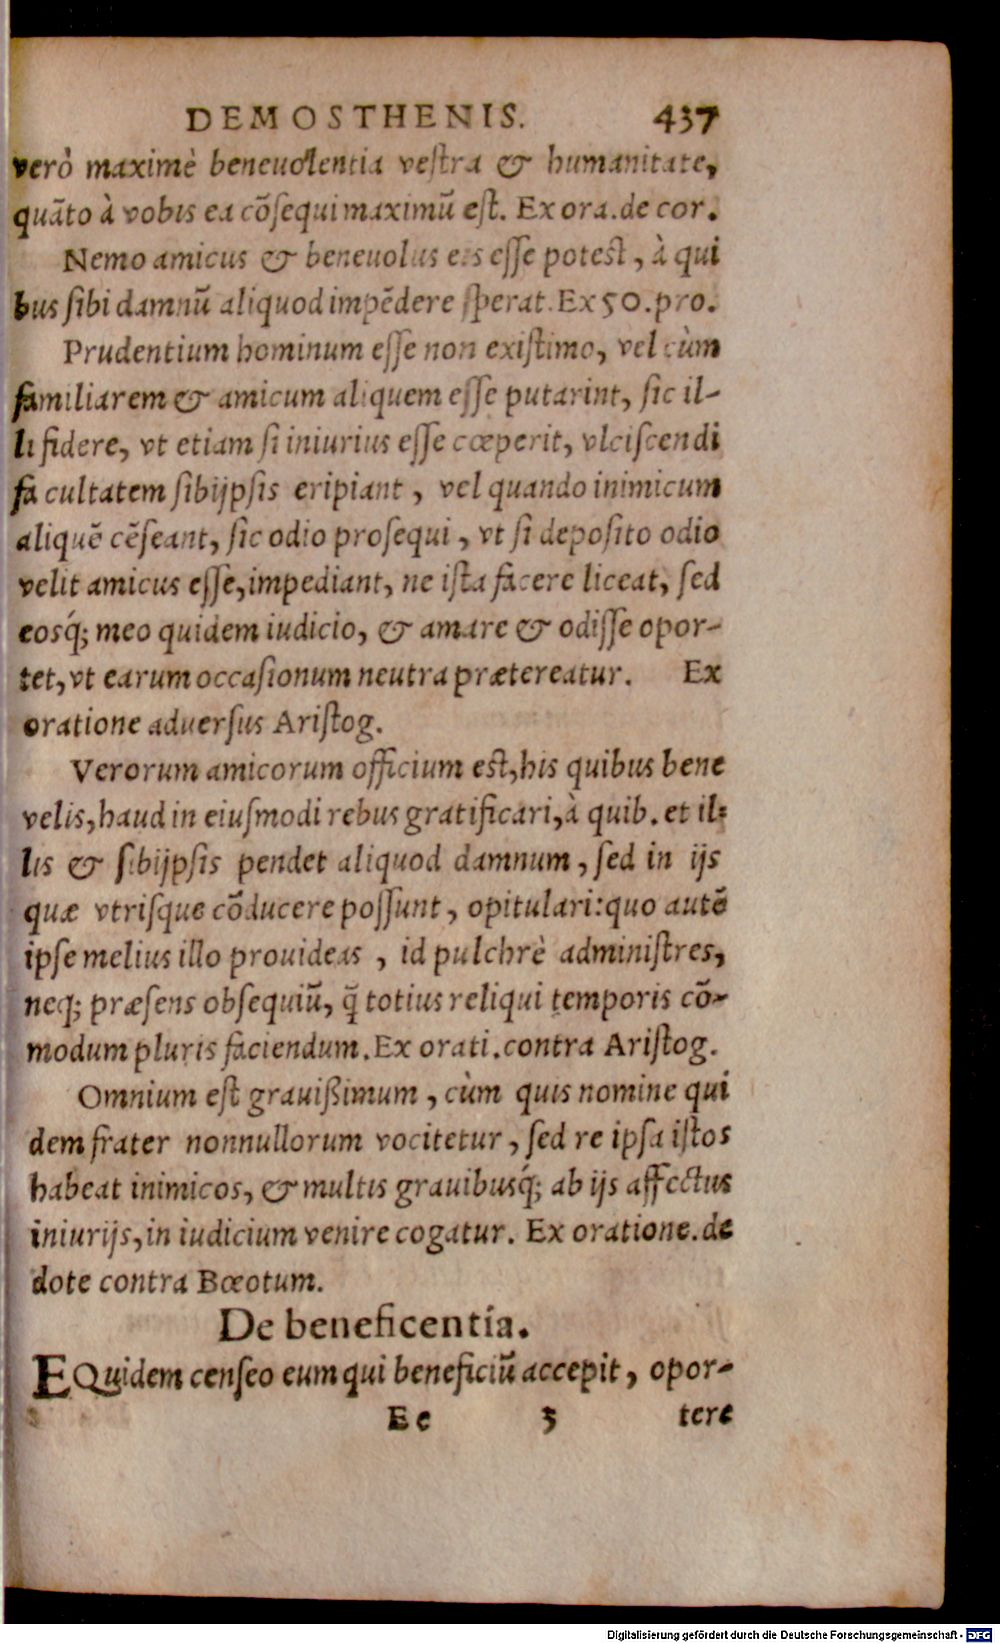 DEMOSTHENIS. 437
verò maximè beneuolentia veſtra & humanitate,
quāto à vobis ea cōſequi maximū eſt. Ex ora. de cor.
Nemo amicus & beneuolus eis eſſe poteſt, à qui
bus ſibi damnū aliquod impēdere ſperat. Ex 50. pro.
Prudentium hominum eſſe non exiſtimo, vel cùm
familiarem & amicum aliquem eſſe putarint, ſic il-
li fidere, vt etiam ſi iniurius eſſe cœperit, vlciſcendi
facultatem ſibijpſis eripiant, vel quando inimicum
aliquē cēſeant, ſic odio proſequi, vt ſi depoſito odio
velit amicus eſſe, impediant, ne iſta facere liceat, ſed
eosq́; meo quidem iudicio, & amare & odiſſe opor-
tet, vt earum occaſionum neutra prætereatur. Ex
oratione aduerſus Ariſtog.
Verorum amicorum officium eſt, his quibus bene
velis, haud in eiuſmodi rebus gratificari, à quib. et il-
lis & ſibijpſis pendet aliquod damnum, ſed in ijs
quæ vtriſque cōducere poſſunt, opitulari: quo autē
ipſe melius illo prouideas, id pulchrè adminiſtres,
neq; præſens obſequiū, q̄ totius reliqui temporis cō-
modum pluris faciendum. Ex orati. contra Ariſtog.
Omnium eſt grauißimum, cùm quis nomine qui
dem frater nonnullorum vocitetur, ſed re ipſa iſtos
habeat inimicos, & multis grauibusq́; ab ijs affectus
iniurijs, in iudicium venire cogatur. Ex oratione. de
dote contra Bœotum.
De beneficentia.
EQuidem cenſeo eum qui beneficiū accepit, opor-
Ee 3 tere
Digitalisierung gefördert durch die Deutsche Forschungsgemeinschaft - DFG